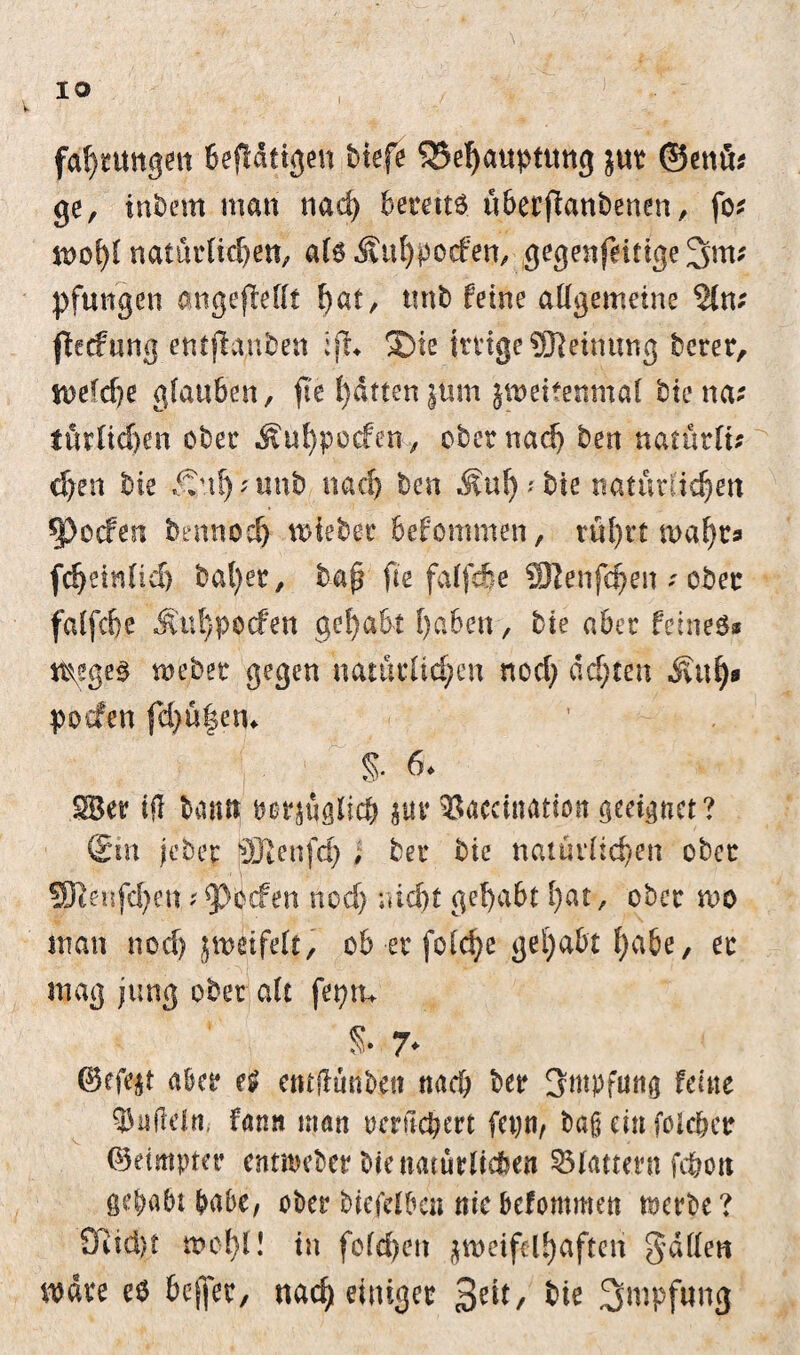 10
fahrungen bestätigen diese Behauptung zur Genü⸗
ge, indem man nach bereits überstandenen, so⸗
wohl natürlichen, als Kuhpocken, gegenseitige Im⸗
pfungen angestellt hat, und keine allgemeine An⸗
steckung entstanden ist. Die irrige Meinung derer,
welche glauben, sie hätten zum zweitenmal die na⸗
türlichen oder Kuhpocken, oder nach den natürli⸗
chen die Kuh⸗und nach den Kuh⸗die natürlichen
Pocken dennoch wieder bekommen, rührt wahr⸗
scheinlich daher, daß sie falsche Menschen⸗oder
falsche Kuhpocken gehabt haben, die aber keines⸗
weges weder gegen natürlichen noch ächten Kuh⸗
pocken schützen.
§. 6.
Wer ist dann vorzüglich zur Vaccination geeignet?
Ein jeder Mensch, der die natürlichen oder
Menschen⸗Pocken noch nicht gehabt hat, oder wo
man noch zweifelt, ob er solche gehabt habe, er
mag jung oder alt seyn.
§. 7.
Gesezt aber es entstünden nach der Impfung keine
Pusteln, kann man versichert seyn, daß ein solcher
Geimpter entweder die natürlichen Blattern schon
gehabt habe, oder dieselben nie bekommen werde?
Nicht wohl! in solchen zweifelhaften Fällen
wäre es besser, nach einiger Zeit, die Impfung